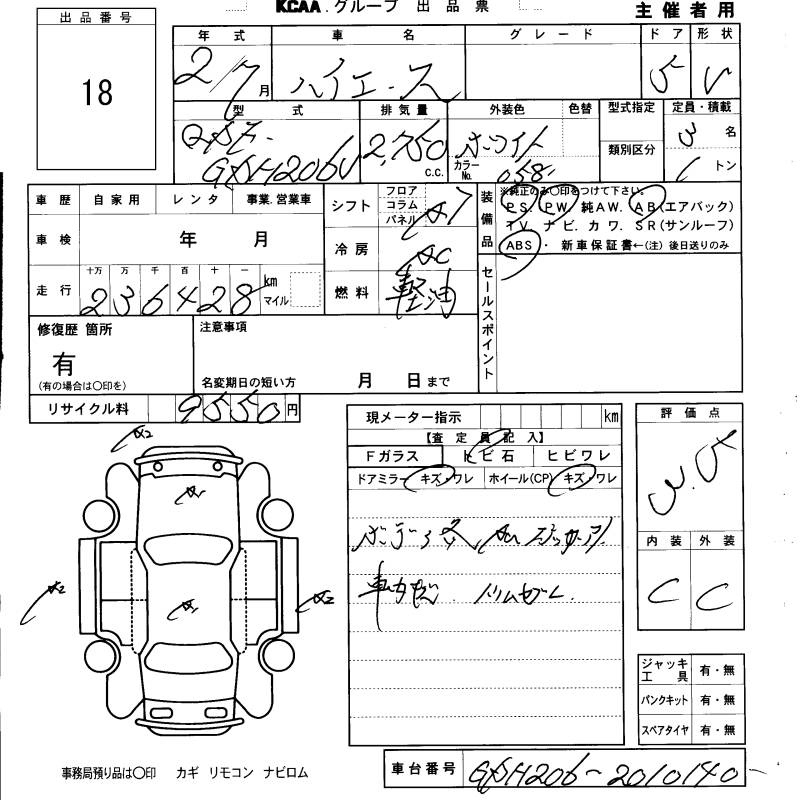 KCAA.グループ 出品票
主催者用
出品番号
18
年式 車名 グレード ドア 形状
2/7月 ハイエース 5 V
型式 排気量 外装色 色替 型式指定 定員・積載
類別区分
QDF-
GDH206V 2,750 c.c. ホワイト
カラーNo. 058
3 名
1 トン
車歴 自家用 レンタ 事業.営業車
シフト フロア コラム パネル AT
車検 年 月
冷房 AC
走行 十万 万 千 百 十 一
236428 km マイル
燃料 軽油
装備品 ※純正のみ○印をつけて下さい。
PS. PW. 純AW. AB(エアバック)
TV. ナビ. カワ. SR(サンルーフ)
ABS ・ 新車保証書←(注) 後日送りのみ
セールスポイント
修復歴 箇所
有
(有の場合は○印を)
注意事項
名変期日の短い方 月 日まで
リサイクル料 9550円
現メーター指示 km
【査定員記入】
Fガラス トビ石 ヒビワレ
ドアミラー キズ・ワレ ホイール(CP) キズ・ワレ
評価点
3.5
内装 外装
C C
A2
A1
A2
A1
A2
ジャッキ工具 有・無
パンクキット 有・無
スペアタイヤ 有・無
事務局預り品は○印 カギ リモコン ナビロム
車台番号 GDH206-2010140-